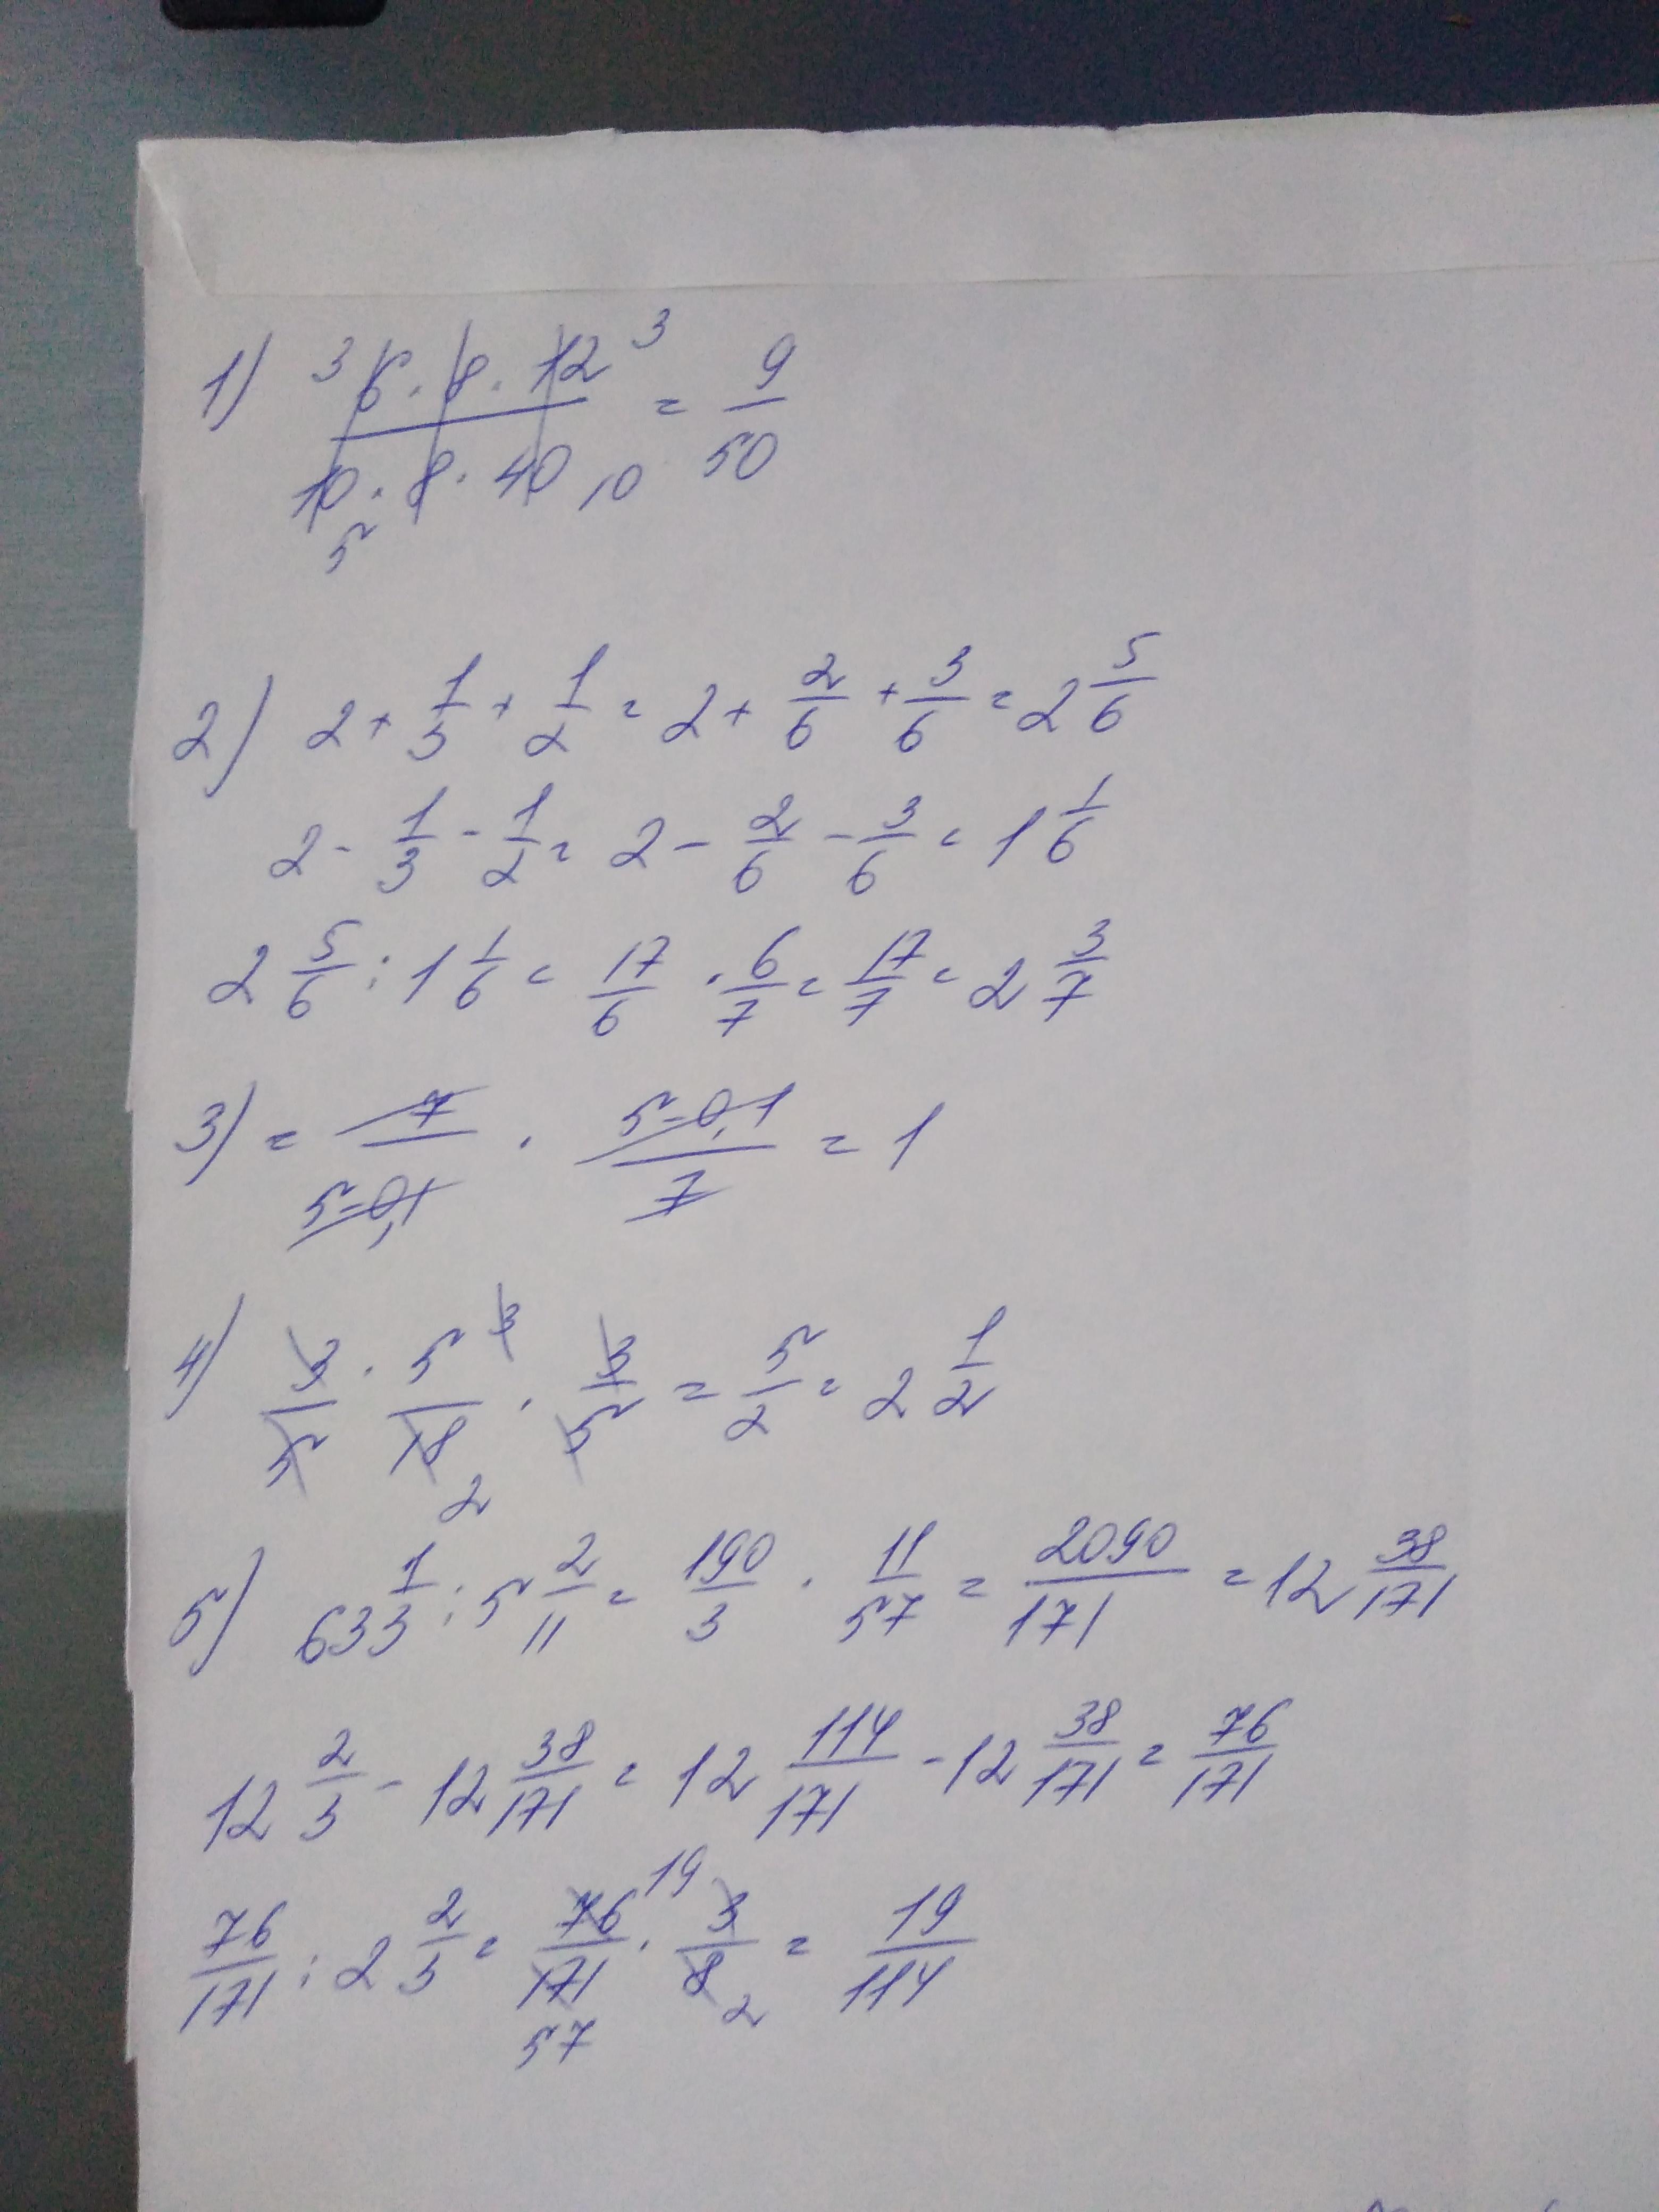 1) ³6·8·12³/10·8·40 = 9/50
5 10
2) 2+1/3+1/2=2+2/6+3/6=2 5/6
2-1/3-1/2=2-2/6-3/6=1 1/6
2 5/6:1 1/6=17/6·6/7=17/7=2 3/7
3) =7/5-0,1·5-0,1/7=1
4) 3/5·5³/18·3/5=5/2=2 1/2
2
5) 63 1/3:5 2/11=190/3·11/57=2090/171=12 38/171
12 2/3-12 38/171=12 114/171-12 38/171=76/171
76/171:2 2/3=76¹⁹/171·3/8=19/114
57 2